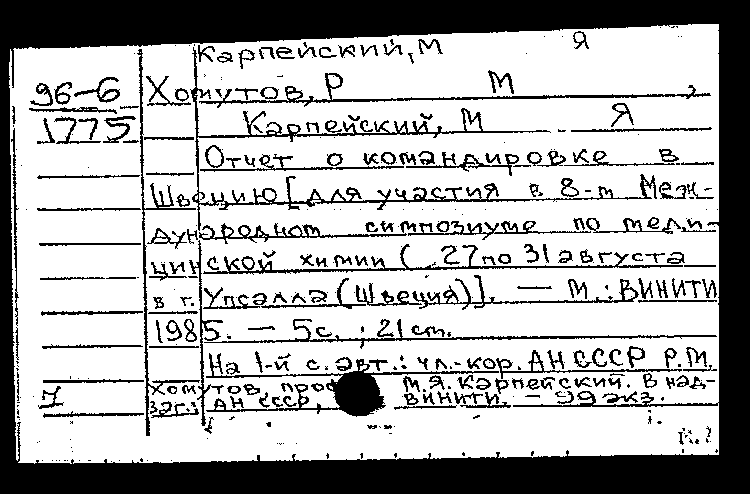 Карпейский, М Я
96-6 Хомутов, Р М ,
1775 Карпейский, М Я
Отчет о командировке в
Швецию [для участия в 8-м Меж-
дународном симпозиуме по меди-
цинской химии ( 27 по 31 августа
в г. Упсалла (Швеция)]. — М.: ВИНИТИ
1985. — 5с. ; 21 см.
На 1-й с. авт.: чл.-кор. АН СССР Р.М.
Хомутов, проф М.Я. Карпейский. В над-
заг.: АН СССР, ВИНИТИ. — 99 экз.
1.